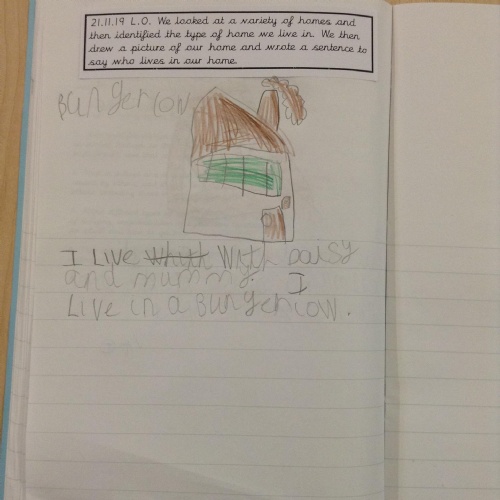 21.11.19 L.O. We looked at a variety of homes and
then identified the type of home we live in. We then
drew a picture of our home and wrote a sentence to
say who lives in our home.
Bungerlow
I LIVE whith WITH Daisy
and mummy. I
LIVE in a Bungerlow.